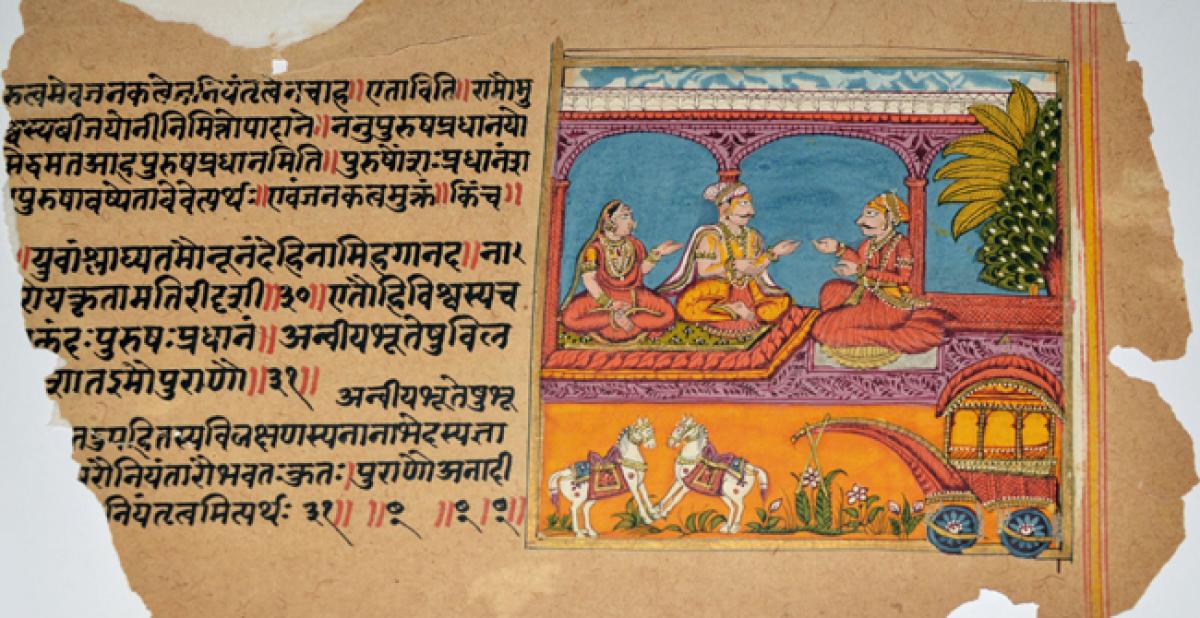 रुत्वमेवजनकत्वेननियंतृत्वेनचाह॥एताविति॥रामोमु
स्यबीजयोनीनिमित्तोपादाने॥ननुपुरुषप्रधानयो
मतआहपुरुषप्रधानमिति॥पुरुषोंशःप्रधानंश
पुरुषावप्येतावेवेत्यर्थः॥एवंजनकत्वमुक्तं॥किंच॥
॥युवांश्लाघ्यतमौनूनंदेहिनामिहमानद॥ना
यत्कृतामतिरीदृशी॥३०॥एतौहिविश्वस्यच
कंदःपुरुषःप्रधानं॥अन्वीयभूतेषुविल
शातइमौपुराणौ॥३१॥ अन्वीयभूतेषुभू
पहितस्यविलक्षणस्यनानाभेदस्यज्ञा
रौनियंतारौभवतःकुतः।पुराणौअनादी
नियंतृत्वमित्यर्थः ३१॥